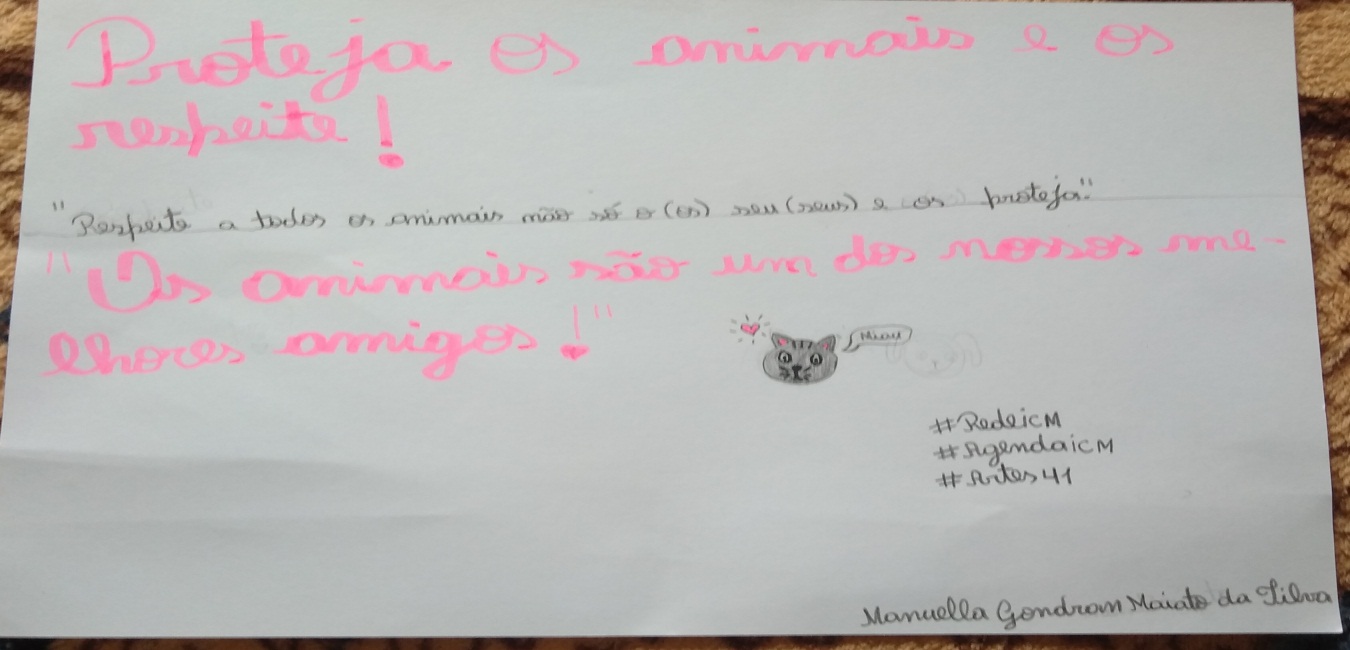 Proteja os animais e os
respeite!
"Respeite a todos os animais não só o (os) seu (seus) e os proteja."
"Os animais são um dos nossos me-
lhores amigos!"
Miau
#RedeicM
#AgendaicM
#Artes41
Manuella Gondram Maiato da Silva